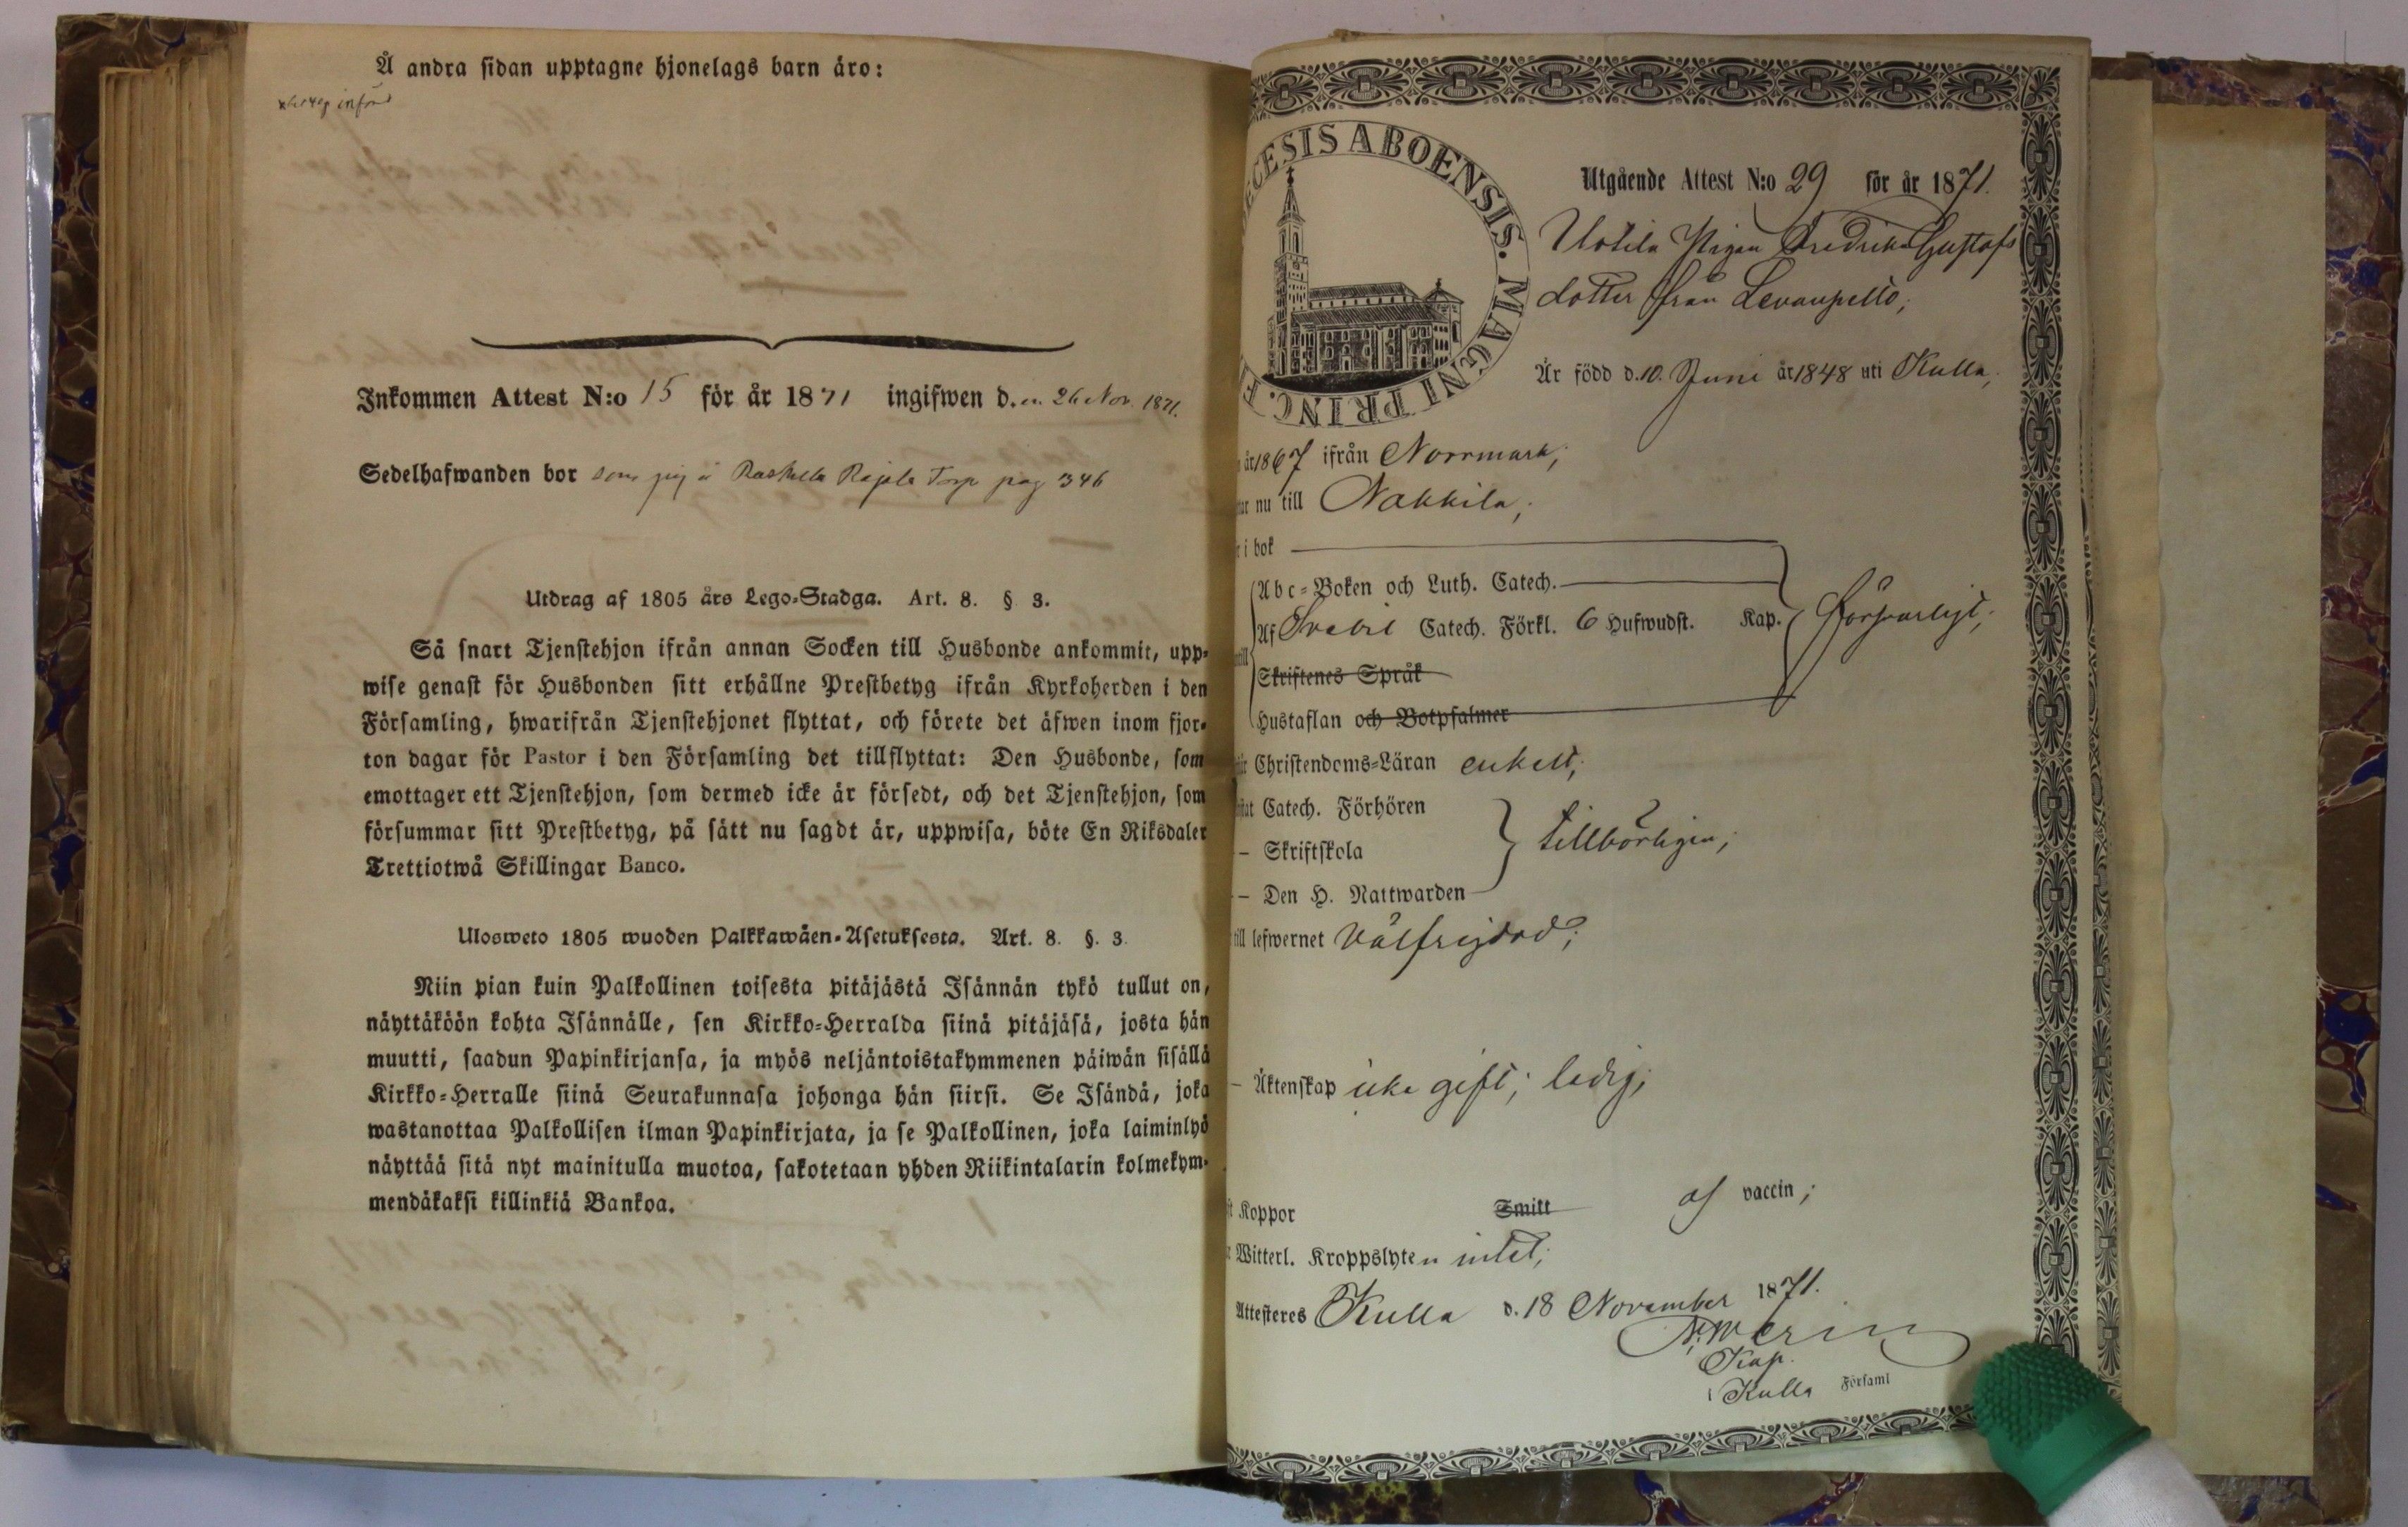 Å andra sidan upptagne hjonelags barn äro:
införd
Inkommen Attest N:o 15 för år 1871 ingifwen d. 26 Nov. 1871.
Sedelhafwanden bor som pig å Raskala Rajala Torp pag 346
Utdrag af 1805 års Lego-Stadga. Art. 8. § 3.
Så snart Tjenstehjon ifrån annan Socken till Husbonde ankommit, upp-
wise genast för Husbonden sitt erhållne Prestbetyg ifrån Kyrkoherden i den
Församling, hwarifrån Tjenstehjonet flyttat, och förete det äfwen inom fjor-
ton dagar för Pastor i den Församling det tillflyttat: Den Husbonde, som
emottager ett Tjenstehjon, som dermed icke är försedt, och det Tjenstehjon, som
försummar sitt Prestbetyg, på sätt nu sagdt är, uppwisa, böte En Riksdaler
Trettiotwå Skillingar Banco.
Ulosweto 1805 wuoden Palkkawäen-Asetuksesta. Art. 8. §. 3.
Niin pian kuin Palkollinen toisesta pitäjästä Isännän tykö tullut on,
näyttäköön kohta Isännälle, sen Kirkko-Herralda siinä pitäjäsä, josta hän
muutti, saadun Papinkirjansa, ja myös neljäntoistakymmenen päiwän sisällä
Kirkko-Herralle siinä Seurakunnasa johonga hän siirsi. Se Isändä, joka
wastanottaa Palkollisen ilman Papinkirjata, ja se Palkollinen, joka laiminlyö
näyttää sitä nyt mainitulla muotoa, sakotetaan yhden Riikintalarin kolmekym-
mendäkaksi killinkiä Bankoa.
ECESIS ABOENSIS. MAGNI PRINC. F
Utgående Attest N:o 29 för år 1871.
Uotila Pigan Fredrika Gustafs
dotter från Levanpelto,
Är född d. 10. Juni år 1848 uti Kulla,
år 1867 ifrån Norrmark,
nu till Nakkila,
i bok
Abc-Boken och Luth. Catech.
Af Svebil Catech. Förkl. 6 Hufwudst. Kap. försvarligt,
Skriftenes Språk
Hustaflan och Botpsalmer
Christendoms-Läran enkelt,
Catech. Förhören
– Skriftskola tillbörligen,
– Den H. Nattwarden
till lefwernet välfrejdad,
– Äktenskap icke gift, ledig,
Koppor Smitt af vaccin,
Witterl. Kroppslyten intet,
Attesteres Kulla d. 18 November 1871.
Kap.
i Kulla Församl